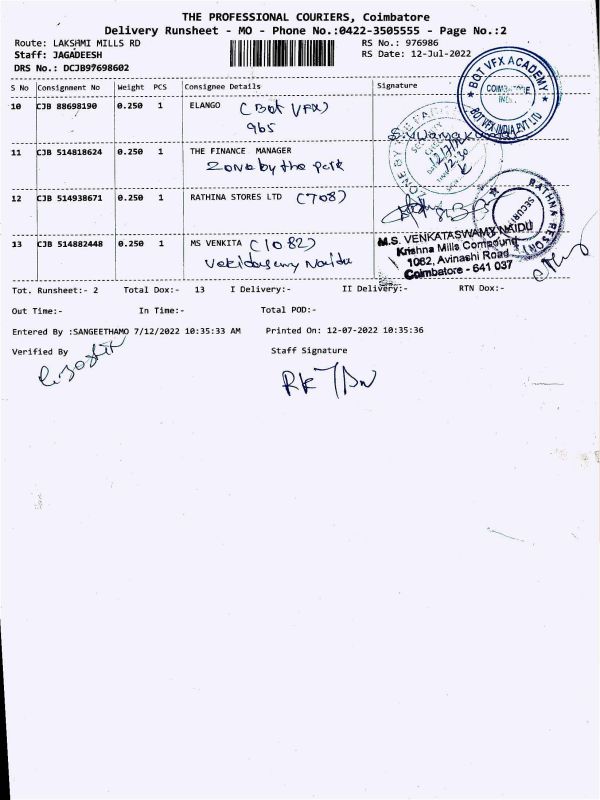 THE PROFESSIONAL COURIERS, Coimbatore
Delivery Runsheet - MO - Phone No.:0422-3505555 - Page No.:2
Route: LAKSHMI MILLS RD RS No.: 976986
Staff: JAGADEESH RS Date: 12-Jul-2022
DRS No.: DCJB97698602
S No Consignment No Weight PCS Consignee Details Signature
10 CJB 88698190 0.250 1 ELANGO (Bot VFX)
965
BOT VFX ACADEMY
COIMBATORE
INDIA
BOT VFX INDIA PVT LTD
11 CJB 514818624 0.250 1 THE FINANCE MANAGER
Zone by the park
ZONE BY THE PARK
SECURITY
12/7/22
12:30
12 CJB 514938671 0.250 1 RATHINA STORES LTD (708)
RATHNA RESORT
SECURITY
13 CJB 514882448 0.250 1 MS VENKITA (1082)
Naidu
M.S. VENKATASWAMY NAIDU
Krishna Mills Compound
1082, Avinashi Road
Coimbatore - 641 037
Tot. Runsheet:- 2 Total Dox:- 13 I Delivery:- II Delivery:- RTN Dox:-
Out Time:- In Time:- Total POD:-
Entered By :SANGEETHAMO 7/12/2022 10:35:33 AM Printed On: 12-07-2022 10:35:36
Verified By Staff Signature